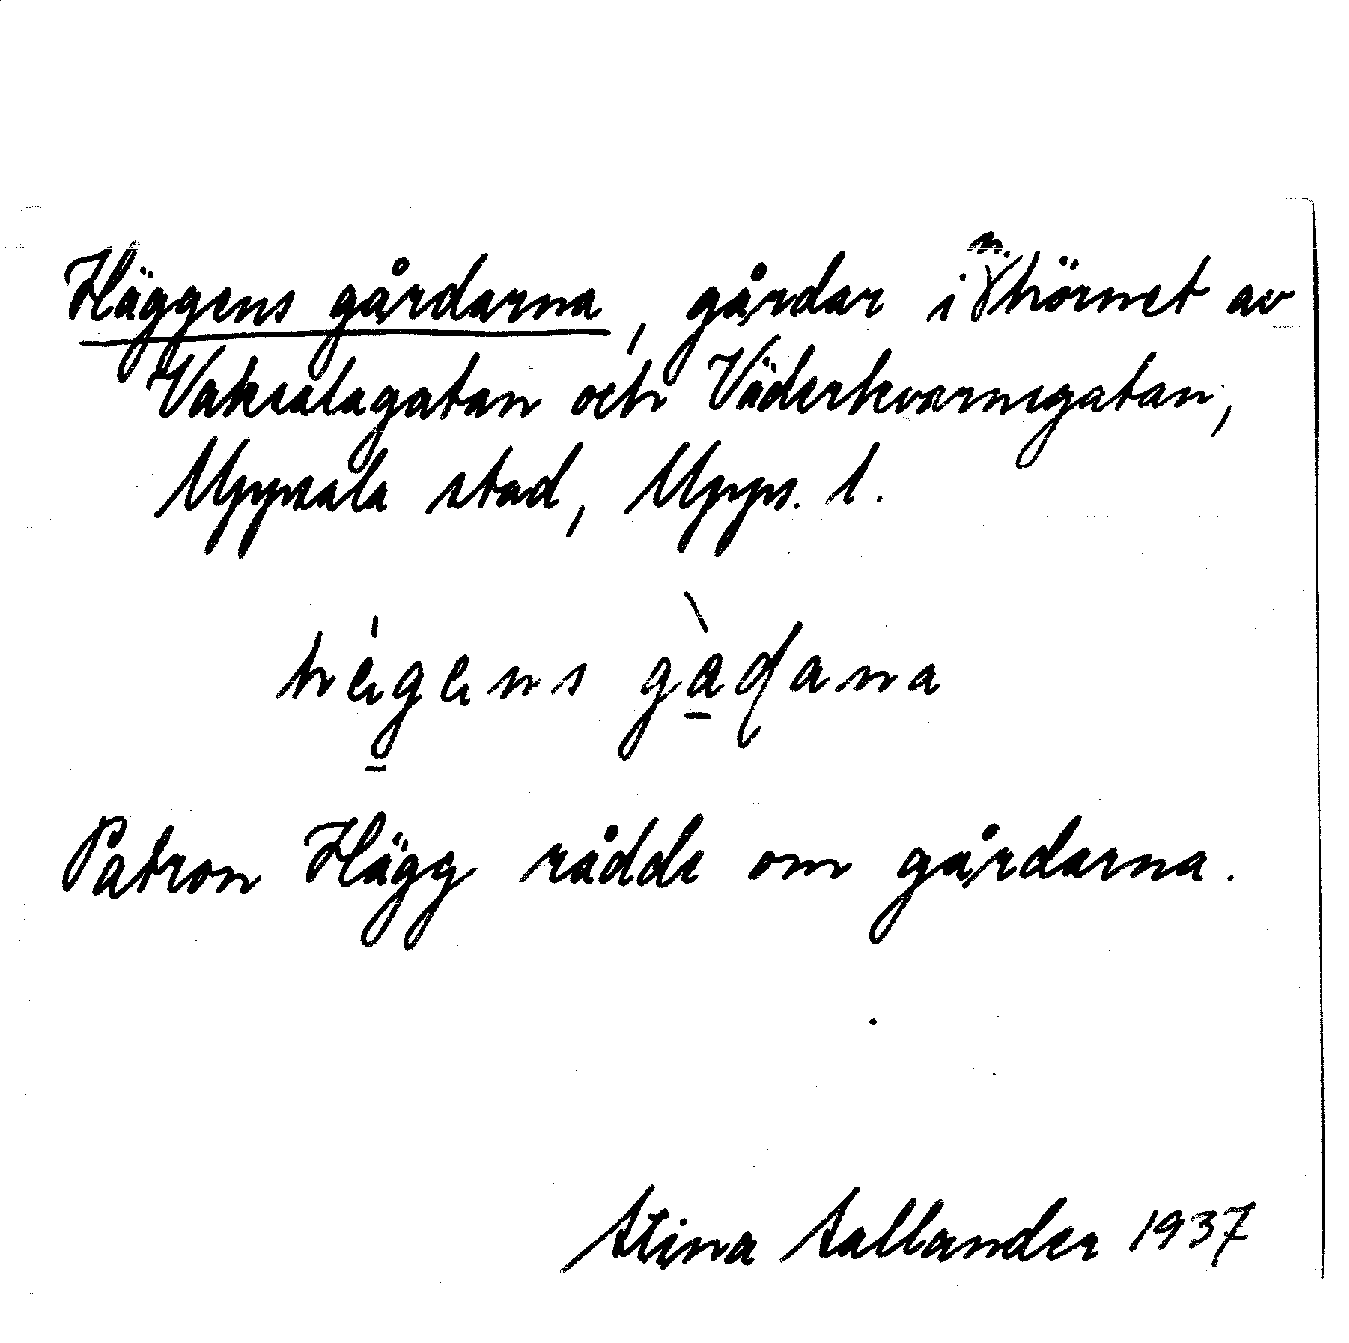 Häggens gårdarna, gårdar i n. hörnet av
Vaksalagatan och Väderkvarnsgatan,
Uppsala stad, Upps. l.
hägens gàdana
Patron Hägg rådde om gårdarna.
Stina Sallander 1937